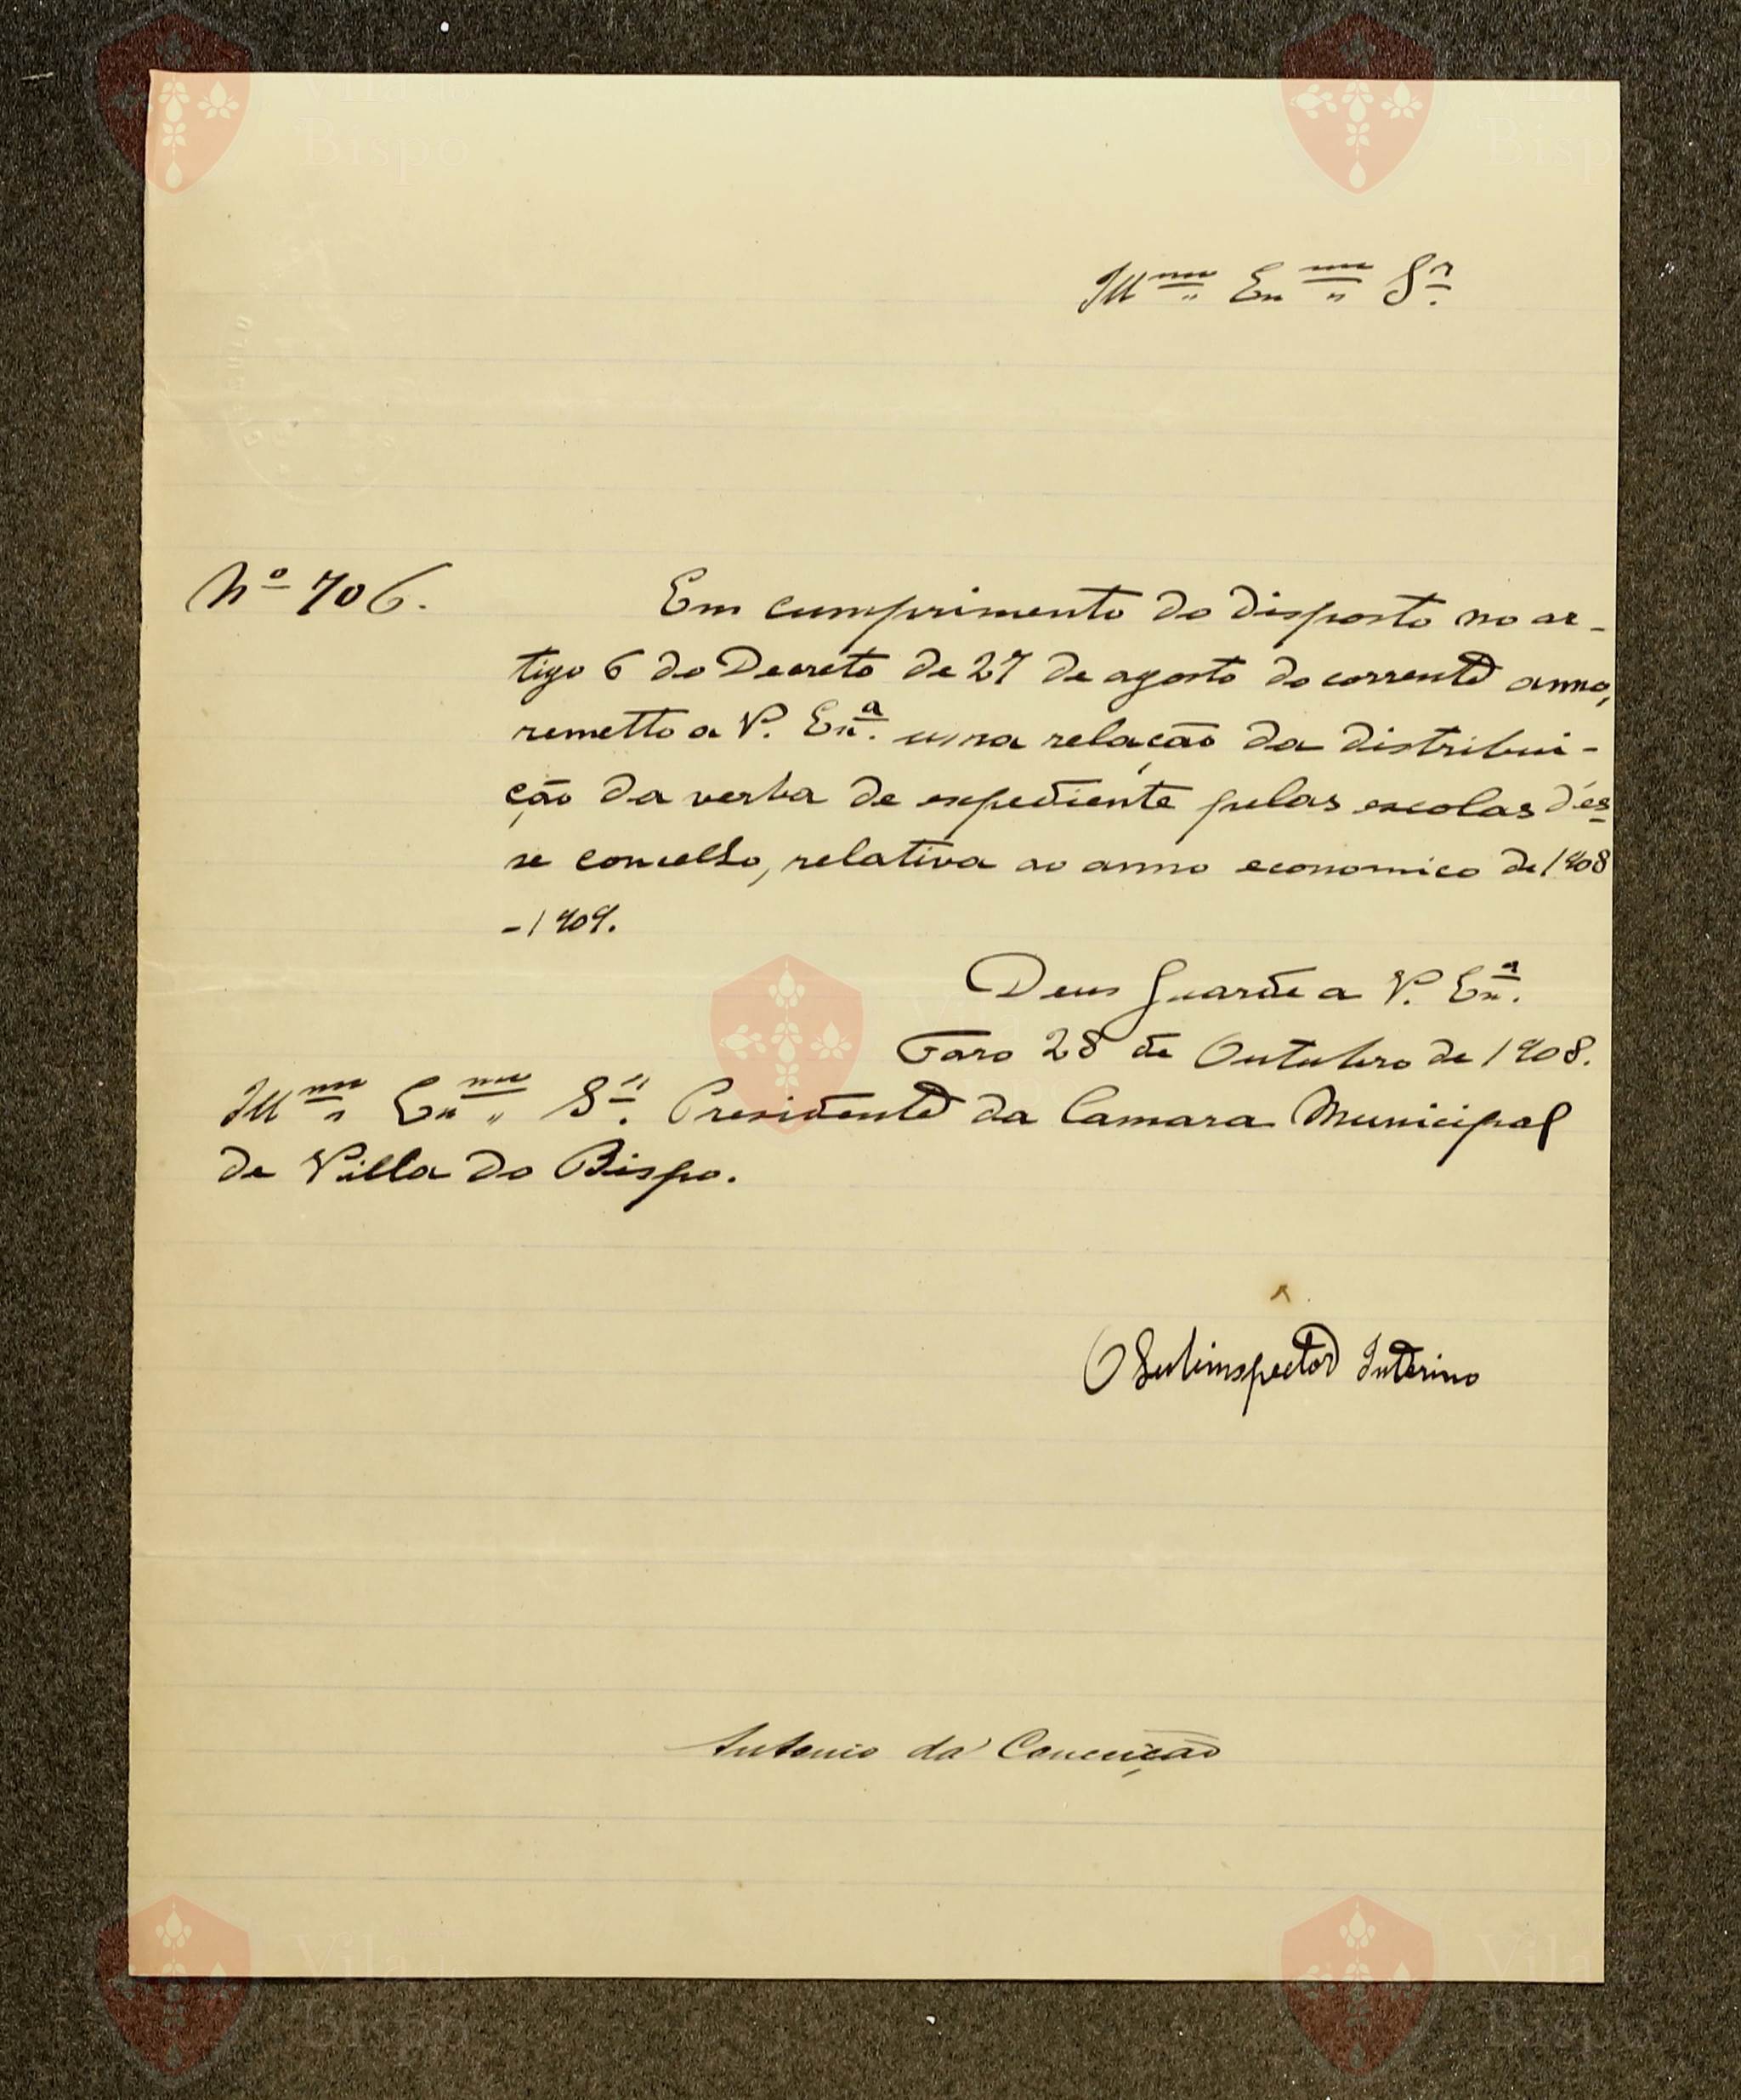 Illmo Exmo Sr.
Nº 706.
Em cumprimento do disposto no ar-
tigo 6 do Decreto de 27 de agosto do corrente anno,
remetto a V. Exa. uma relação da distribui-
ção da verba de expediente pelas escolas d'es-
se concelho, relativa ao anno economico de 1908
-1909.
Deus Guarde a V. Exa.
Faro 28 de Outubro de 1908.
Illmo Exmo Sr. Presidente da Camara Municipal
de Villa do Bispo.
O Subinspector Interino
Antonio da Conceição
Vila do
Bispo